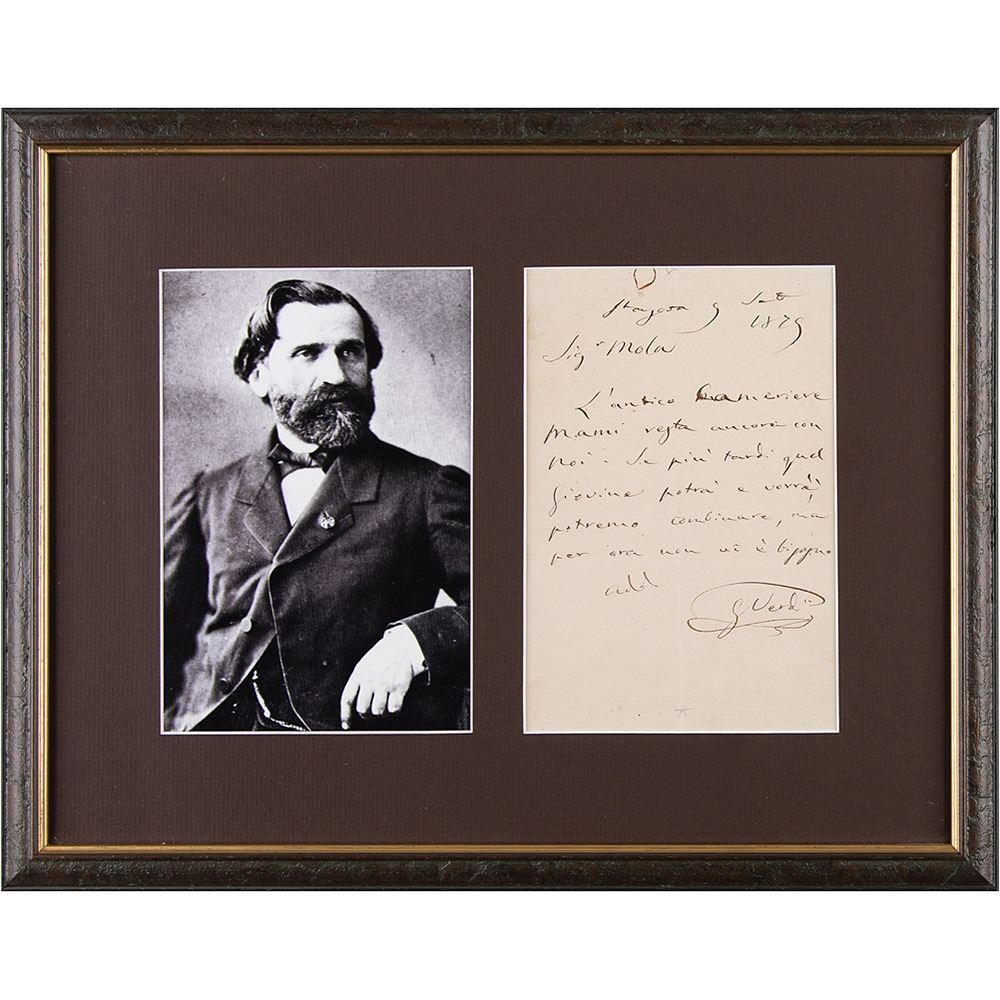 St Agata 9 Sett
1879
Sigr Mola
L'antico Cameriere
Mami resta ancora con
noi - Se più tardi quel
Giovine potrà e vorrà
potremo combinare, ma
per ora non vi è bisogno
add
G Verdi